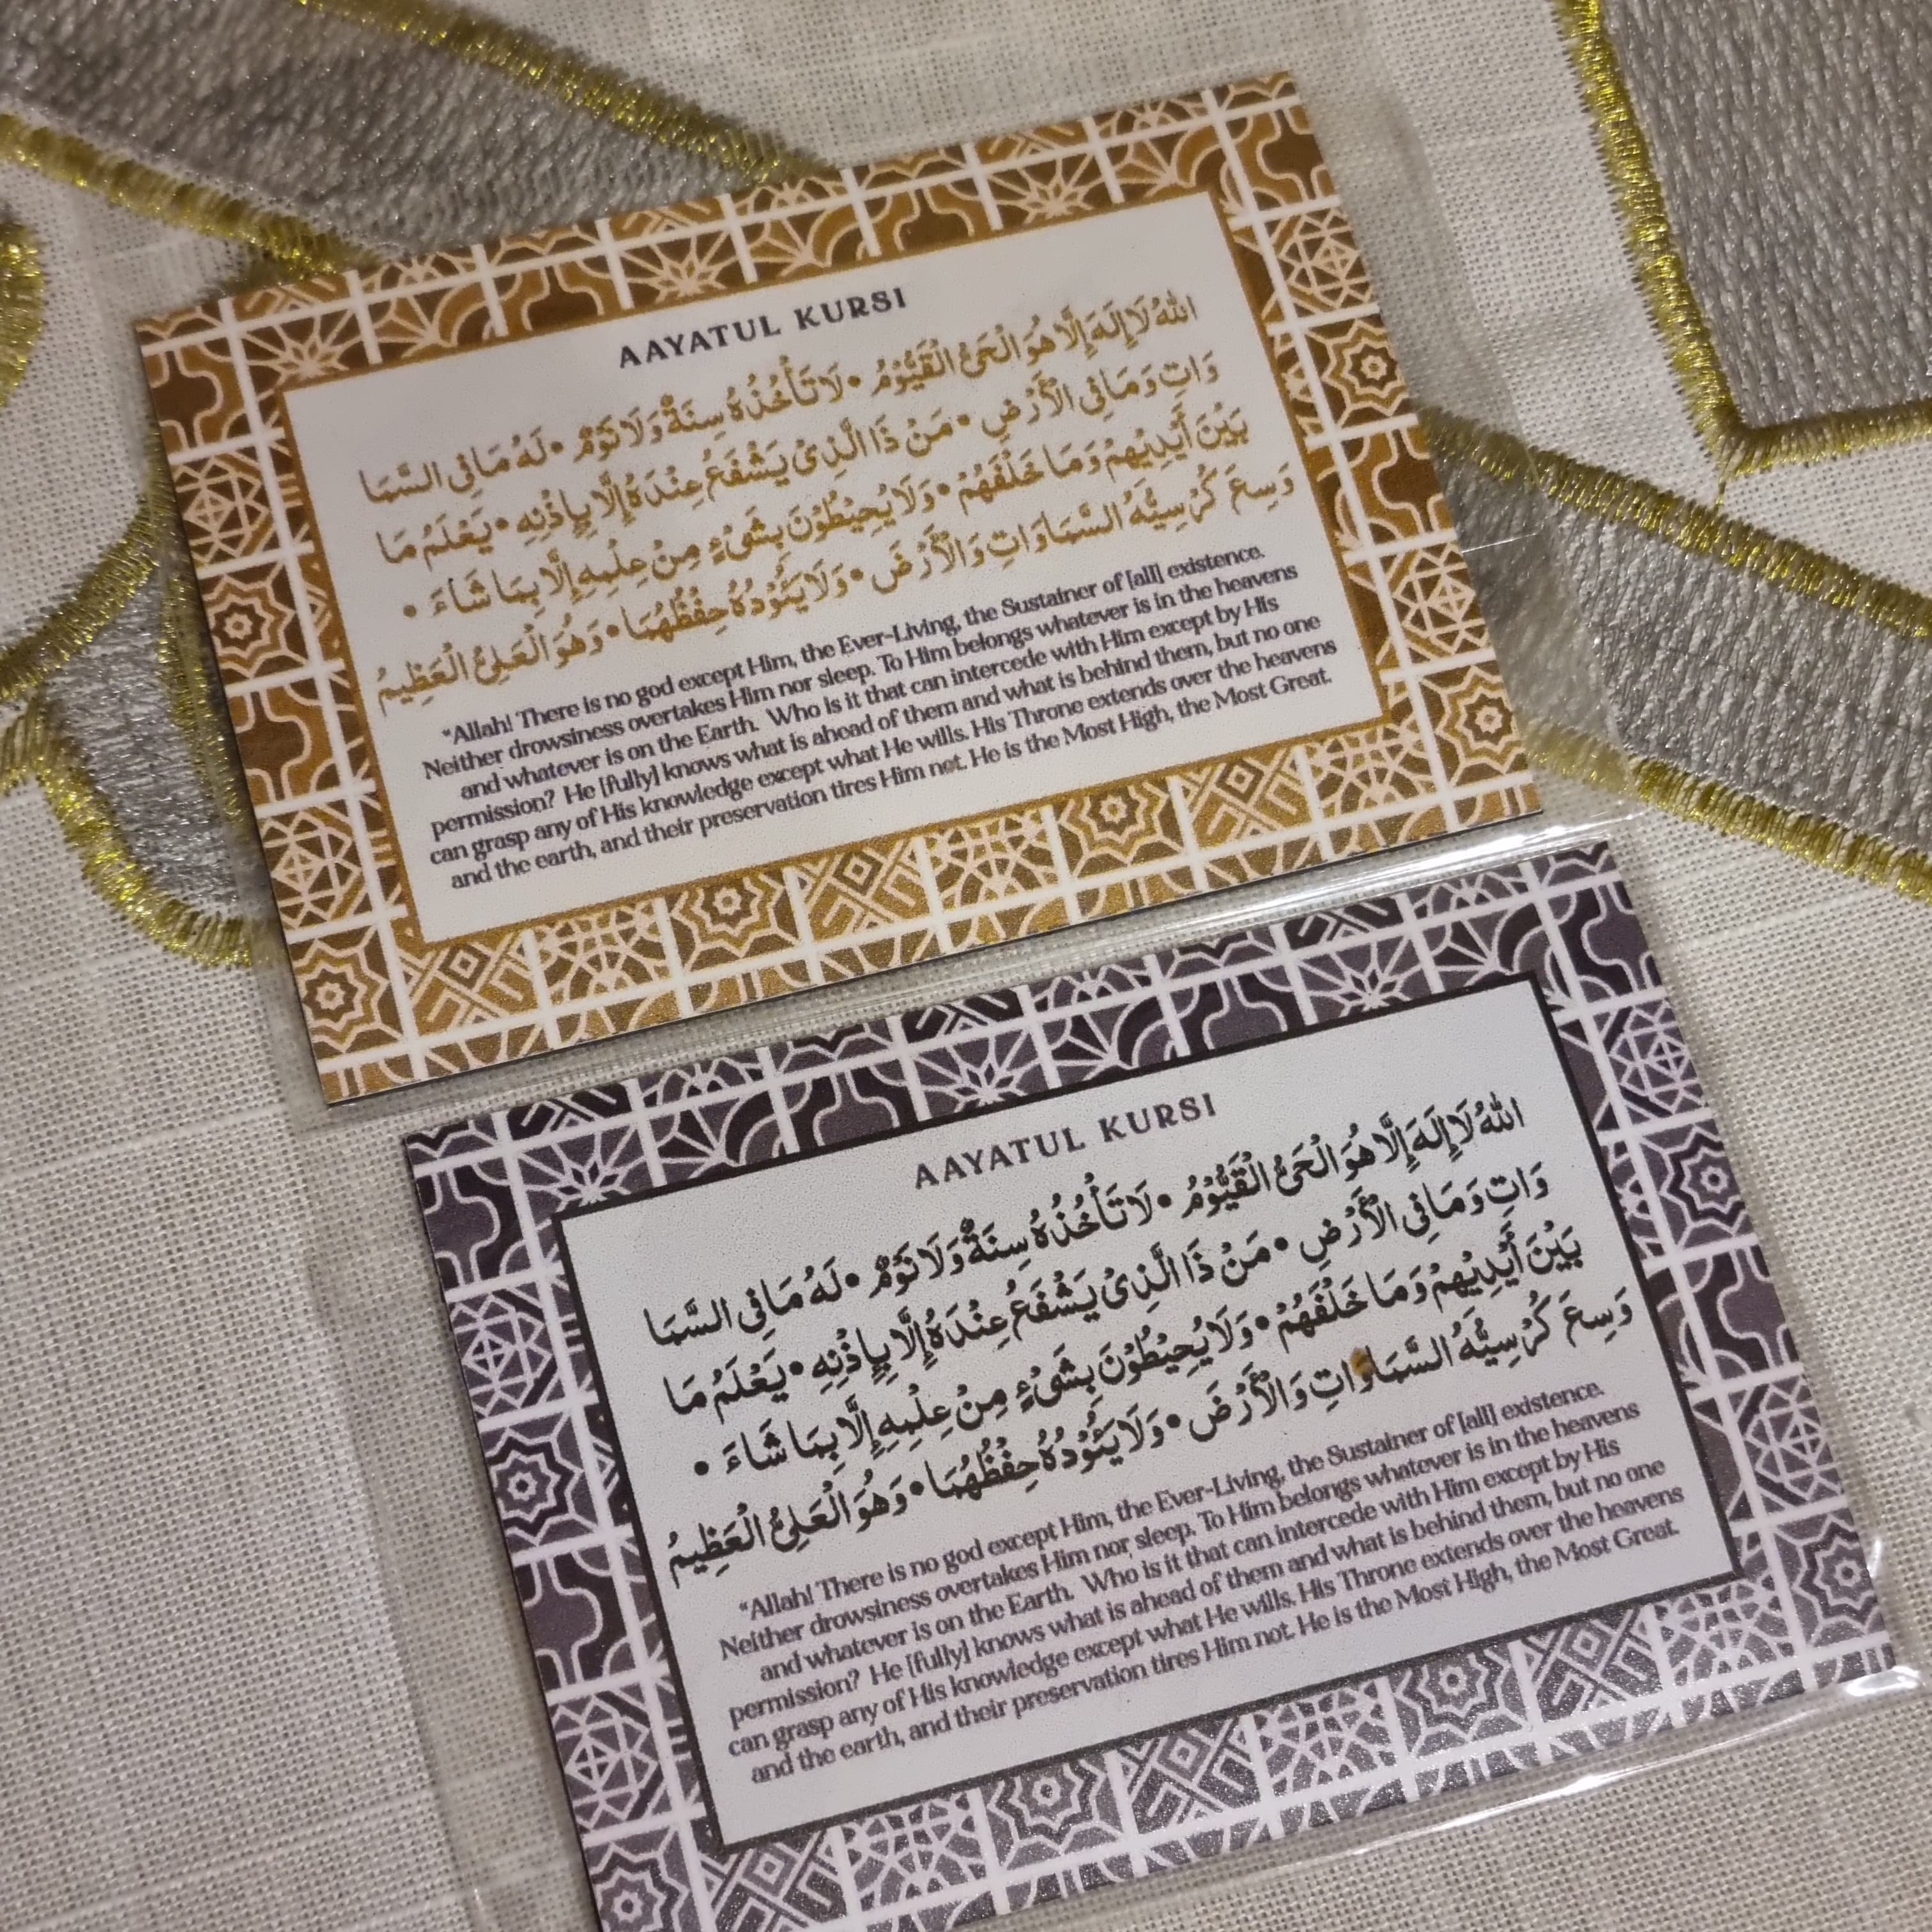 AAYATUL KURSI
اللهُ لَا إِلَهَ إِلَّا هُوَ الْحَىُّ الْقَيُّوْمُ • لَا تَأْخُذُهُ سِنَةٌ وَّلَا نَوْمٌ • لَهُ مَا فِى السَّمَا
وَاتِ وَمَا فِى الْأَرْضِ • مَنْ ذَا الَّذِىْ يَشْفَعُ عِنْدَهُ إِلَّا بِإِذْنِهِ • يَعْلَمُ مَا
بَيْنَ أَيْدِيْهِمْ وَمَا خَلْفَهُمْ • وَلَا يُحِيْطُوْنَ بِشَىْءٍ مِنْ عِلْمِهِ إِلَّا بِمَا شَاءَ •
وَسِعَ كُرْسِيُّهُ السَّمَاوَاتِ وَالْأَرْضَ • وَلَا يَئُوْدُهُ حِفْظُهُمَا • وَهُوَ الْعَلِىُّ الْعَظِيمُ
"Allah! There is no god except Him, the Ever-Living, the Sustainer of [all] existence.
Neither drowsiness overtakes Him nor sleep. To Him belongs whatever is in the heavens
and whatever is on the Earth. Who is it that can intercede with Him except by His
permission? He [fully] knows what is ahead of them and what is behind them, but no one
can grasp any of His knowledge except what He wills. His Throne extends over the heavens
and the earth, and their preservation tires Him not. He is the Most High, the Most Great.
AAYATUL KURSI
اللهُ لَا إِلَهَ إِلَّا هُوَ الْحَىُّ الْقَيُّوْمُ • لَا تَأْخُذُهُ سِنَةٌ وَّلَا نَوْمٌ • لَهُ مَا فِى السَّمَا
وَاتِ وَمَا فِى الْأَرْضِ • مَنْ ذَا الَّذِىْ يَشْفَعُ عِنْدَهُ إِلَّا بِإِذْنِهِ • يَعْلَمُ مَا
بَيْنَ أَيْدِيْهِمْ وَمَا خَلْفَهُمْ • وَلَا يُحِيْطُوْنَ بِشَىْءٍ مِنْ عِلْمِهِ إِلَّا بِمَا شَاءَ •
وَسِعَ كُرْسِيُّهُ السَّمَاوَاتِ وَالْأَرْضَ • وَلَا يَئُوْدُهُ حِفْظُهُمَا • وَهُوَ الْعَلِىُّ الْعَظِيمُ
"Allah! There is no god except Him, the Ever-Living, the Sustainer of [all] existence.
Neither drowsiness overtakes Him nor sleep. To Him belongs whatever is in the heavens
and whatever is on the Earth. Who is it that can intercede with Him except by His
permission? He [fully] knows what is ahead of them and what is behind them, but no one
can grasp any of His knowledge except what He wills. His Throne extends over the heavens
and the earth, and their preservation tires Him not. He is the Most High, the Most Great.